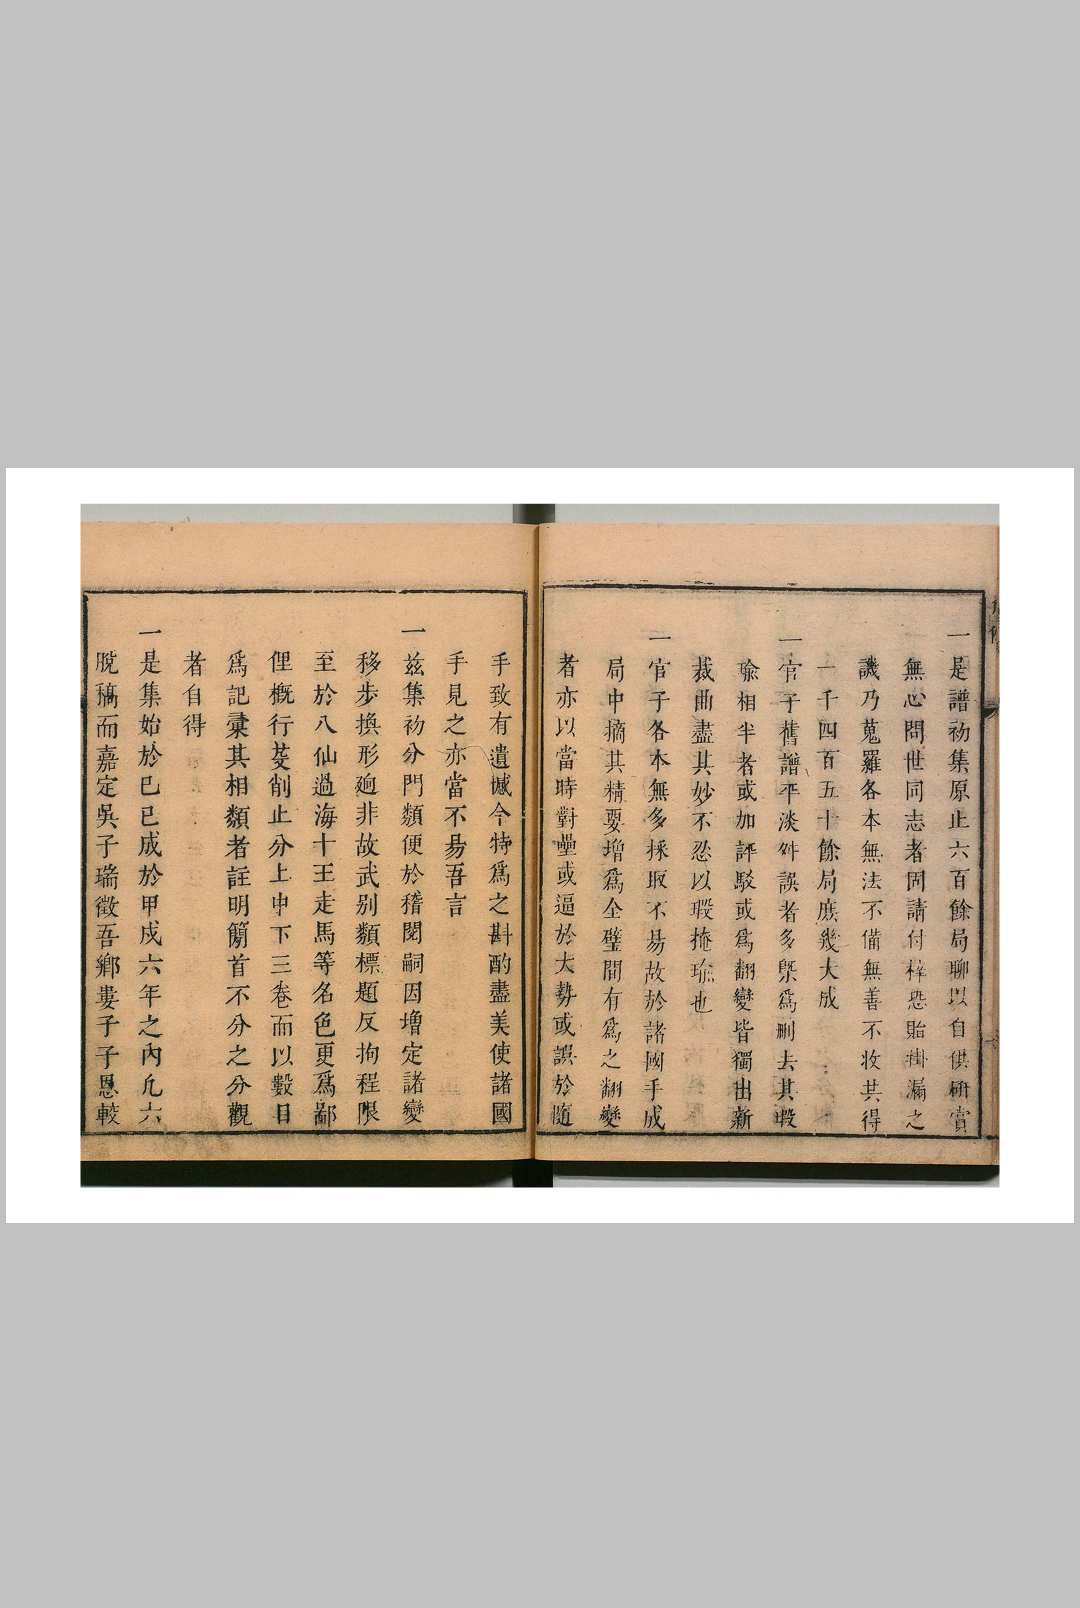 一是譜初集原止六百餘局聊以自供硏賞
無心問世同志者固請付梓恐貽掛漏之
譏乃蒐羅各本無法不備無善不收共得
一千四百五十餘局庶幾大成
一官子舊譜平淡舛誤者多槩爲刪去其瑕
瑜相半者或加評駁或爲翻變皆獨出新
裁曲盡其妙不忍以瑕掩瑜也
一官子各本無多採取不易故於諸國手成
局中摘其精要增爲全璧間有爲之翻變
者亦以當時對壘或逼於大勢或誤於隨
手致有遺憾今特爲之斟酌盡美使諸國
手見之亦當不易吾言
一玆集初分門類便於稽閱嗣因增定諸變
移步換形逈非故武别類標題反拘程限
至於八仙過海十王走馬等名色更爲鄙
俚槪行芟削止分上中下三卷而以數目
爲記彙其相類者註明簡首不分之分觀
者自得
一是集始於己巳成於甲戌六年之內凡六
脫稿而嘉定吳子瑞徵吾鄉婁子子恩較